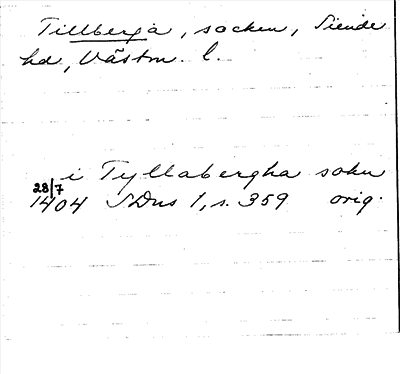 Tillberga, socken, Siende
hd, Västm. l.
i Tyllabergha sokn
28/7 1404 SDns 1, s. 359 orig.